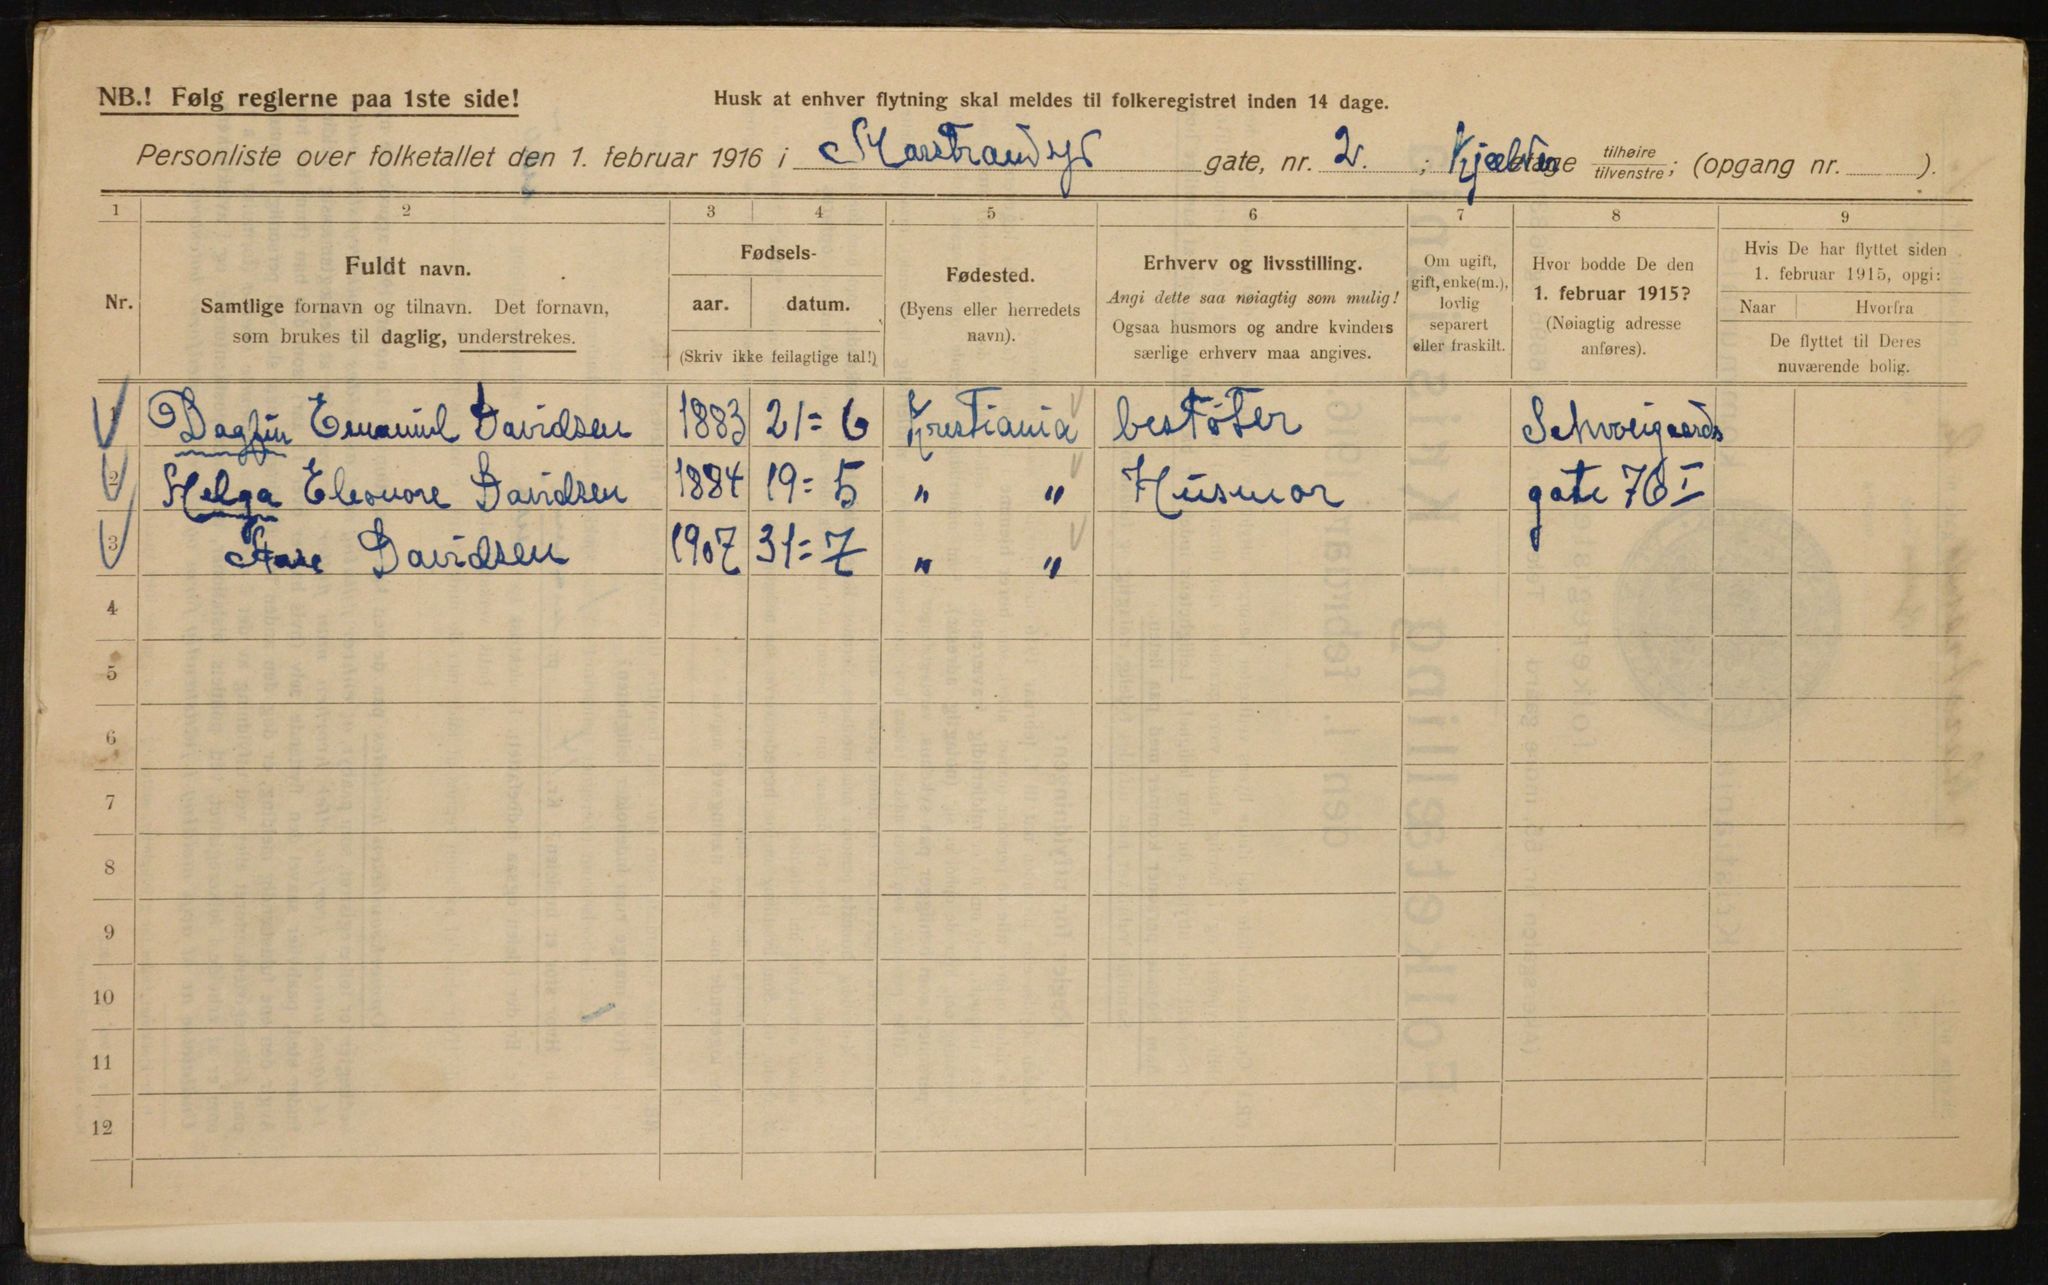 NB.! Følg reglerne paa 1ste side!
Husk at enhver flytning skal meldes til folkeregistret inden 14 dage.
Personliste over folketallet den 1. februar 1916 i Marstrandsgt gate, nr. 2. ; Kjælder etage tilhøire/tilvenstre; (opgang nr. ).
1 2 3 4 5 6 7 8 9
Nr.
Fuldt navn.
Samtlige fornavn og tilnavn. Det fornavn,
som brukes til daglig, understrekes.
Fødsels-
aar. datum.
(Skriv ikke feilagtige tal!)
Fødested.
(Byens eller herredets
navn).
Erhverv og livsstilling.
Angi dette saa nøiagtig som mulig!
Ogsaa husmors og andre kvinders
særlige erhverv maa angives.
Om ugift,
gift, enke(m.),
lovlig
separert
eller fraskilt.
Hvor bodde De den
1. februar 1915?
(Nøiagtig adresse
anføres).
Hvis De har flyttet siden
1. februar 1915, opgi:
Naar Hvorfra
De flyttet til Deres
nuværende bolig.
1 Dagfin Emanuil Davidsen 1883 21=6 Krestiania bestøter Schweigaards
2 Helga Eleonore Davidsen 1884 19=5 " " Husmor gate 76 I
3 Aase Davidsen 1907 31=7 " "
4
5
6
7
8
9
10
11
12